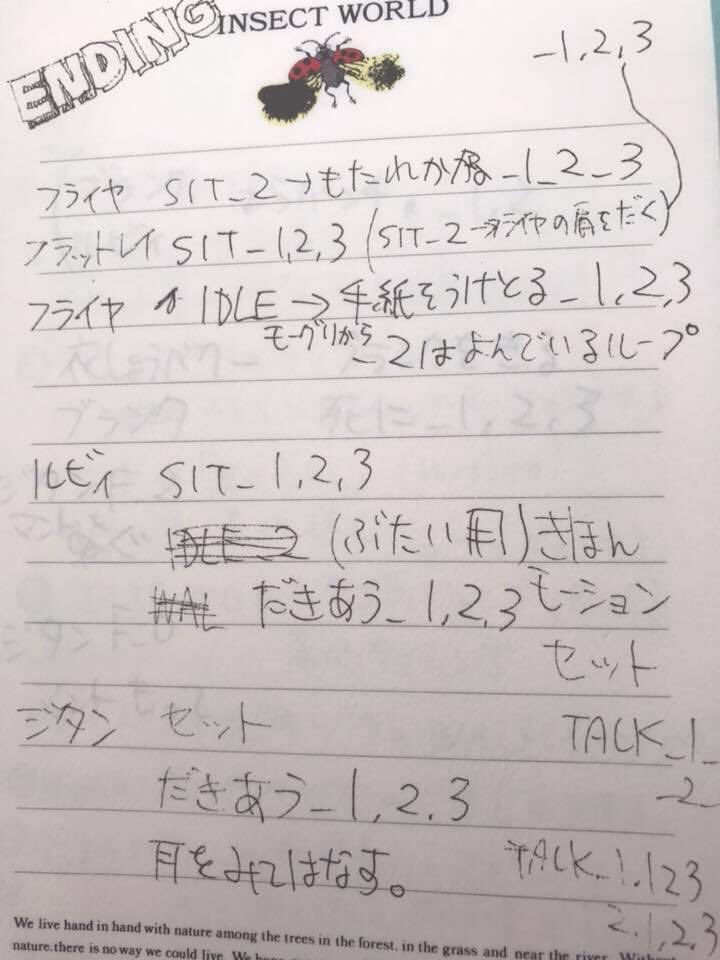 ENDING
INSECT WORLD
_1,2,3
フライヤ SIT_2→もたれかかる_1_2_3
フラットレイ SIT_1,2,3 (SIT_2→フライヤの肩をだく)
フライヤ IDLE→手紙をうけとる_1,2,3
モーグリから _2はよんでいるループ
ルビィ SIT_1,2,3
IDLE_2 (ぶたい用)きほん
WAL だきあう_1,2,3 モーション
セット
ジタン セット TALK_1_
_2_
だきあう_1,2,3
耳をみてはなす。 TALK_1.123
2.1,2,3
We live hand in hand with nature among the trees in the forest. in the grass and near the river. Without
nature. there is no way we could live. We